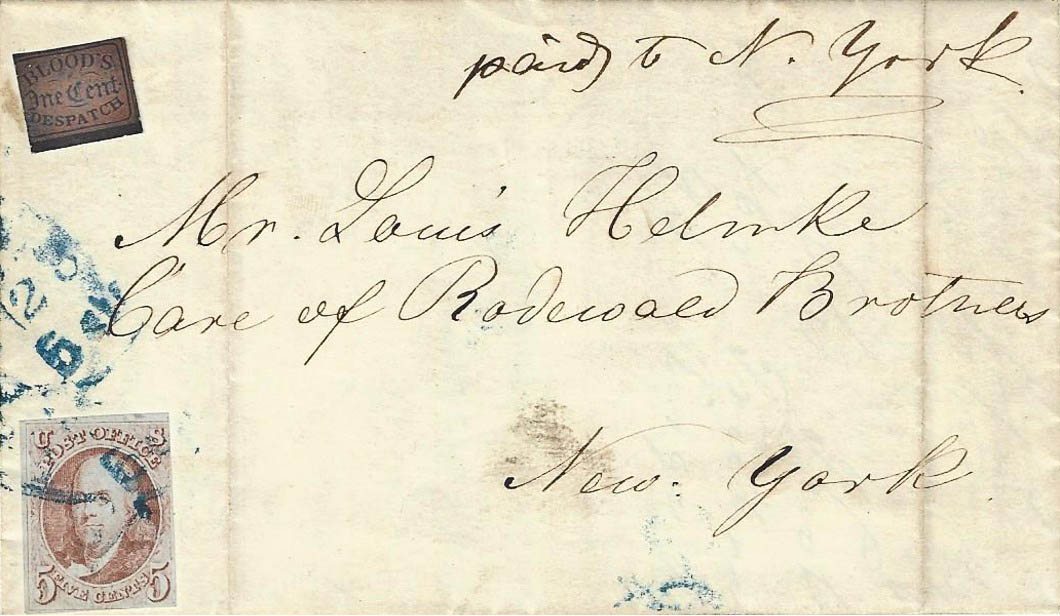 BLOOD'S
One Cent
DESPATCH
paid to N. York.
Mr. Louis Helmke
Care of Rodewald Brothers
New. York.
5
5 5
POST OFFICE
5 FIVE CENTS 5